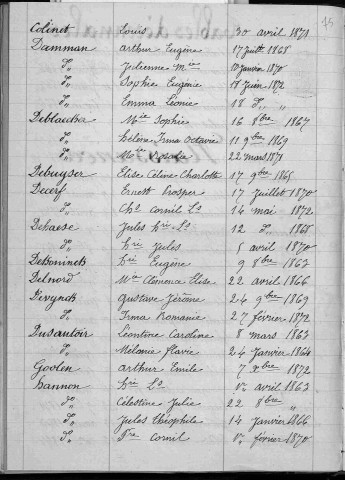 15
Colinet Louis 30 avril 1871
Damman Arthur Eugène 17 Juillt 1868
d° Julienne Mie 10 Janvier 1870
d° Sophie Eugénie 18 Juin 1872
d° Emma Léonie 18 d° "
Mie Sophie 16 8bre 1867
d° Hélène Irma Octavie 11 9bre 1869
d° Mie Rosalie 22 mars 1871
Debuyser Elise Céline Charlotte 17 9bre 1865
Decerf Ernest Prosper 17 Juillet 1870
d° Chs Cornil Ls 14 mai 1872
Dehaese Jules hri Ls 12 d° 1868
d° hri Jules 5 avril 1870
DeKoninck hri Eugène 9 8bre 1863
Delnord Mie Clémence Elise 22 avril 1866
Devynck Gustave Jérôme 24 9bre 1869
d° Irma Romanie 27 février 1872
Dusautoir Léontine Caroline 8 mars 1863
d° Mélanie Flavie 24 Janvier 1864
Goolen Arthur Emile 7 xbre 1872
hannon hri Ls 1er avril 1863
d° Célestine Julie 22 8bre "
d° Jules Théophile 14 Janvier 1866
d° Pre Cornil 1er février 1870